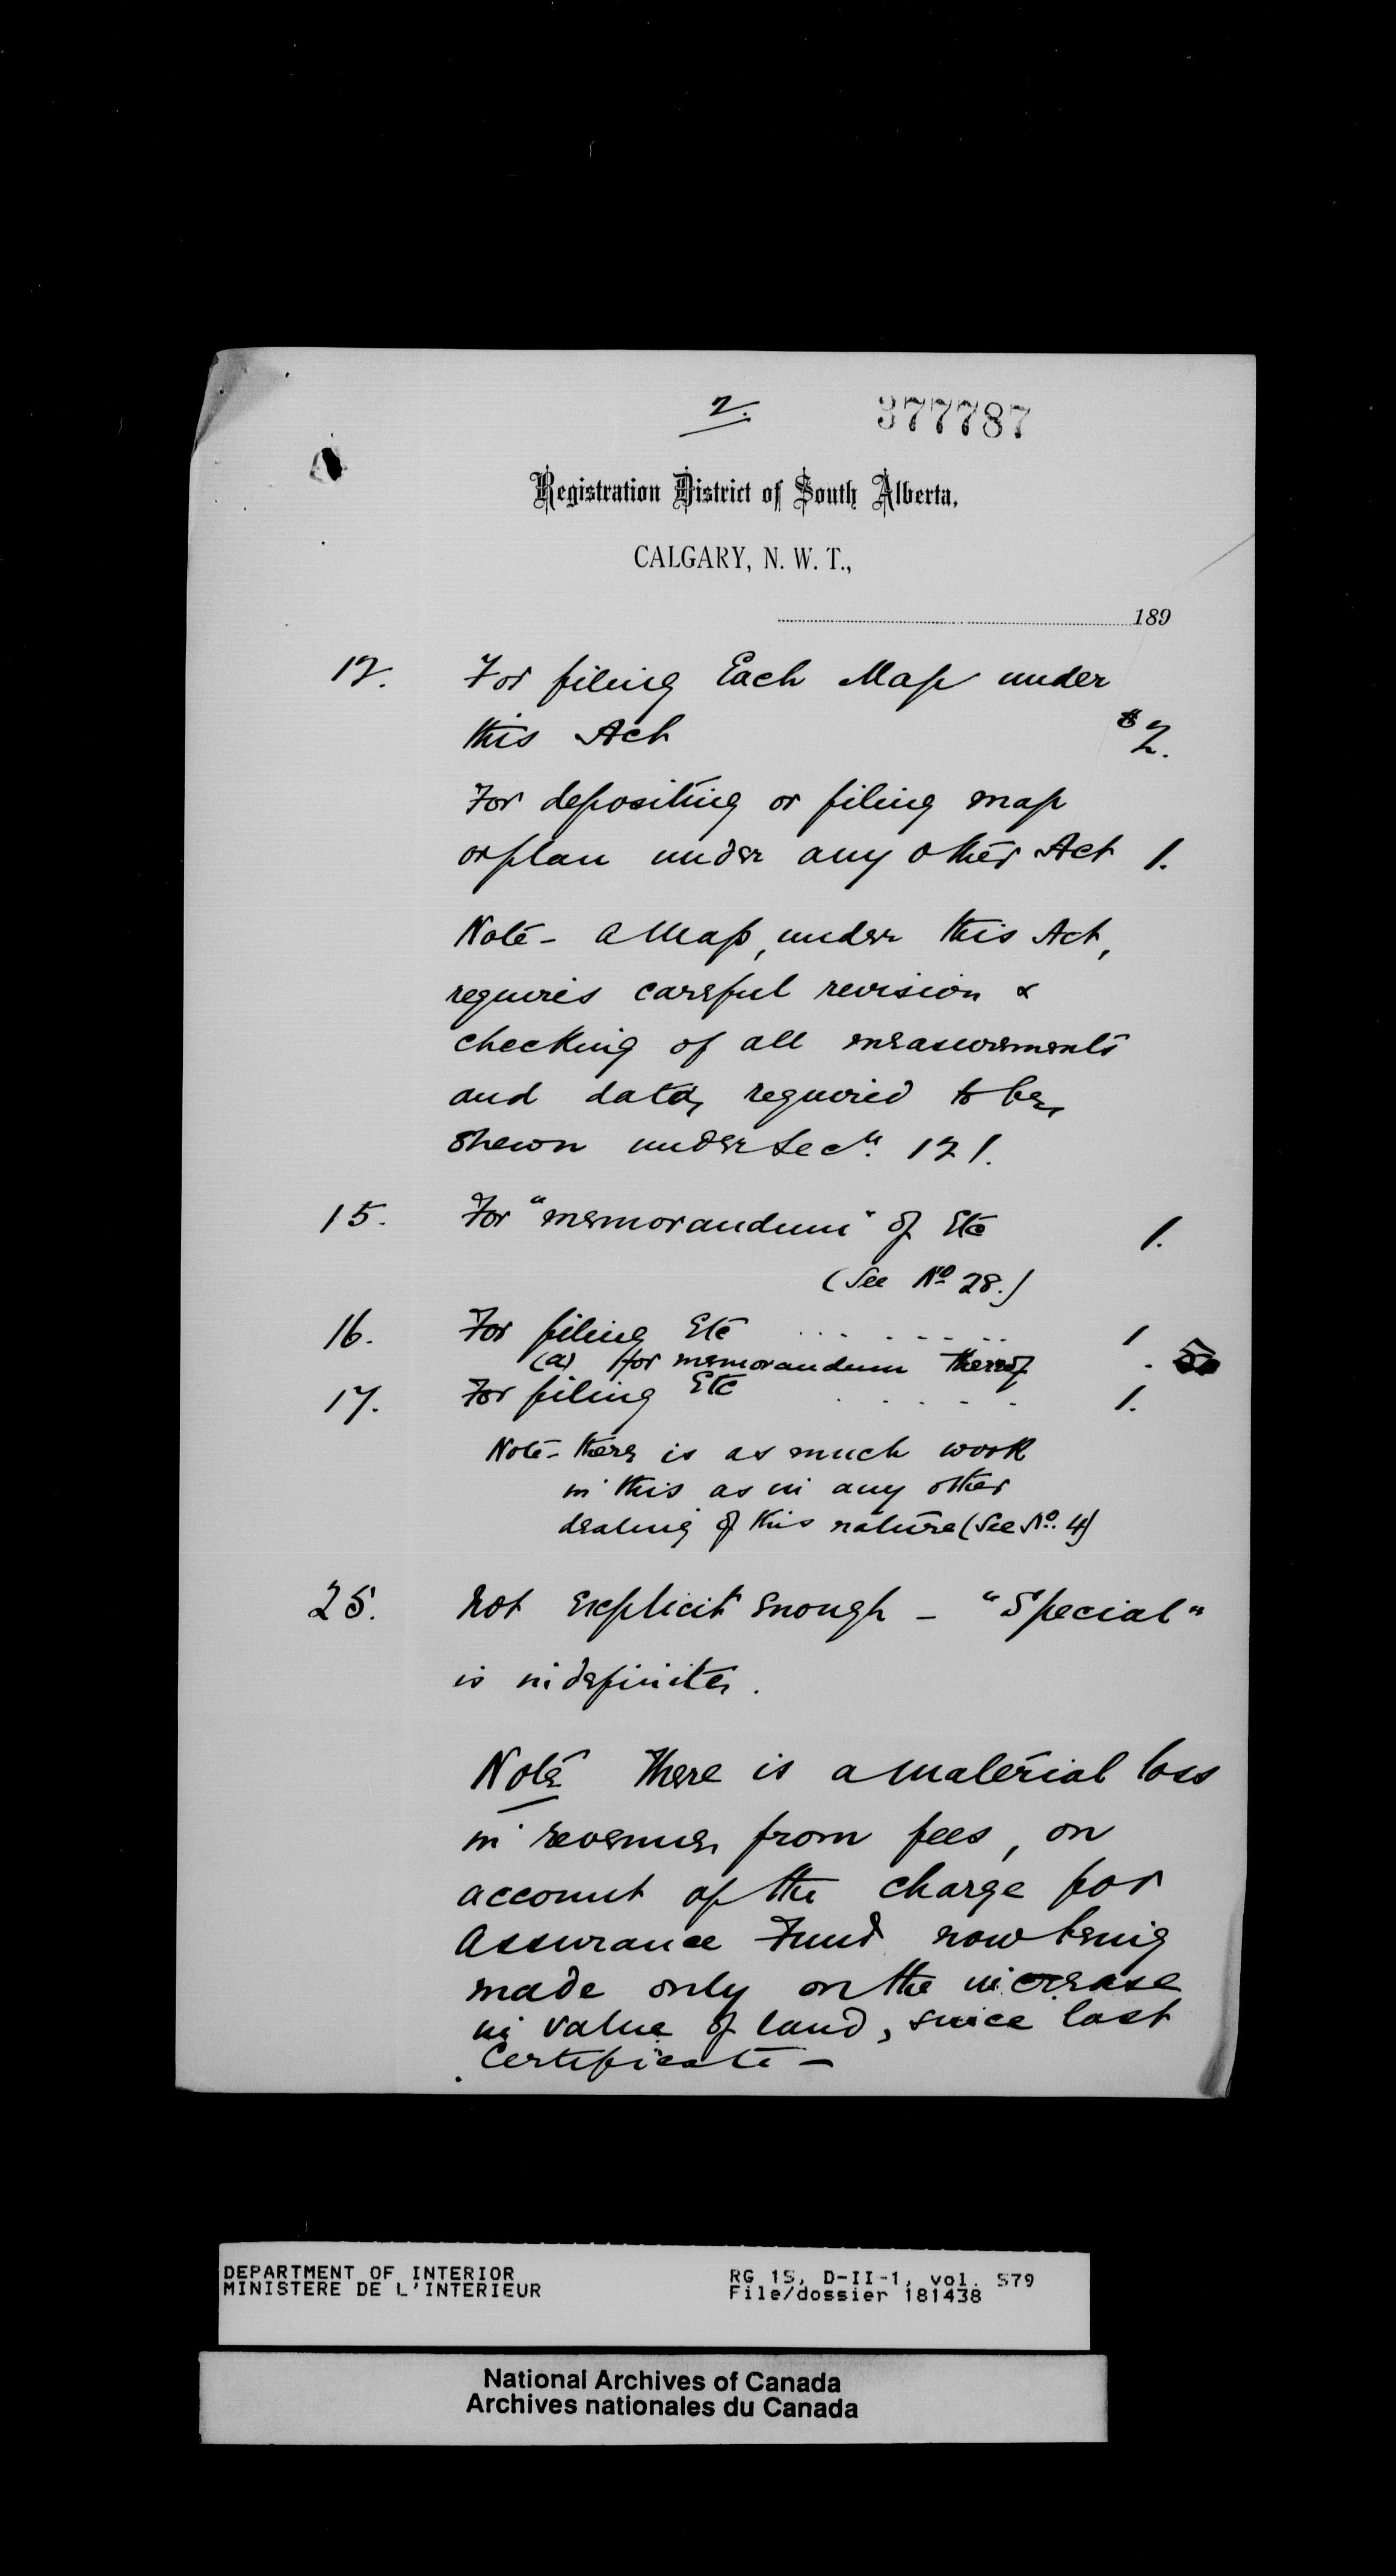 2.
377787
Registration District of South Alberta,
CALGARY, N. W. T.,
189
12. For filing Each Map under
this Act $2.
For depositing or filing map
or plan under any other Act 1.
Note - a Map, under this Act,
requires careful revision &
checking of all measurements
and data, required to be,
shewn under Secn. 121.
15. For "memorandum" of Etc 1.
(See No 28.)
16. For filing Etc . . . . . . . 1
(a) for memorandum thereof .
17. For filing Etc . . . . . 1.
Note - there is as much work
in this as in any other
dealing of this nature (See No. 4)
25. Not explicit enough - "Special"
is indefinite.
Note There is a material loss
in revenue from fees, on
account of the charge for
Assurance Fund now being
made only on the increase
in value of land, since last
Certificate -
DEPARTMENT OF INTERIOR
MINISTERE DE L'INTERIEUR
RG 15, D-II-1, vol. 579
File/dossier 181438
National Archives of Canada
Archives nationales du Canada